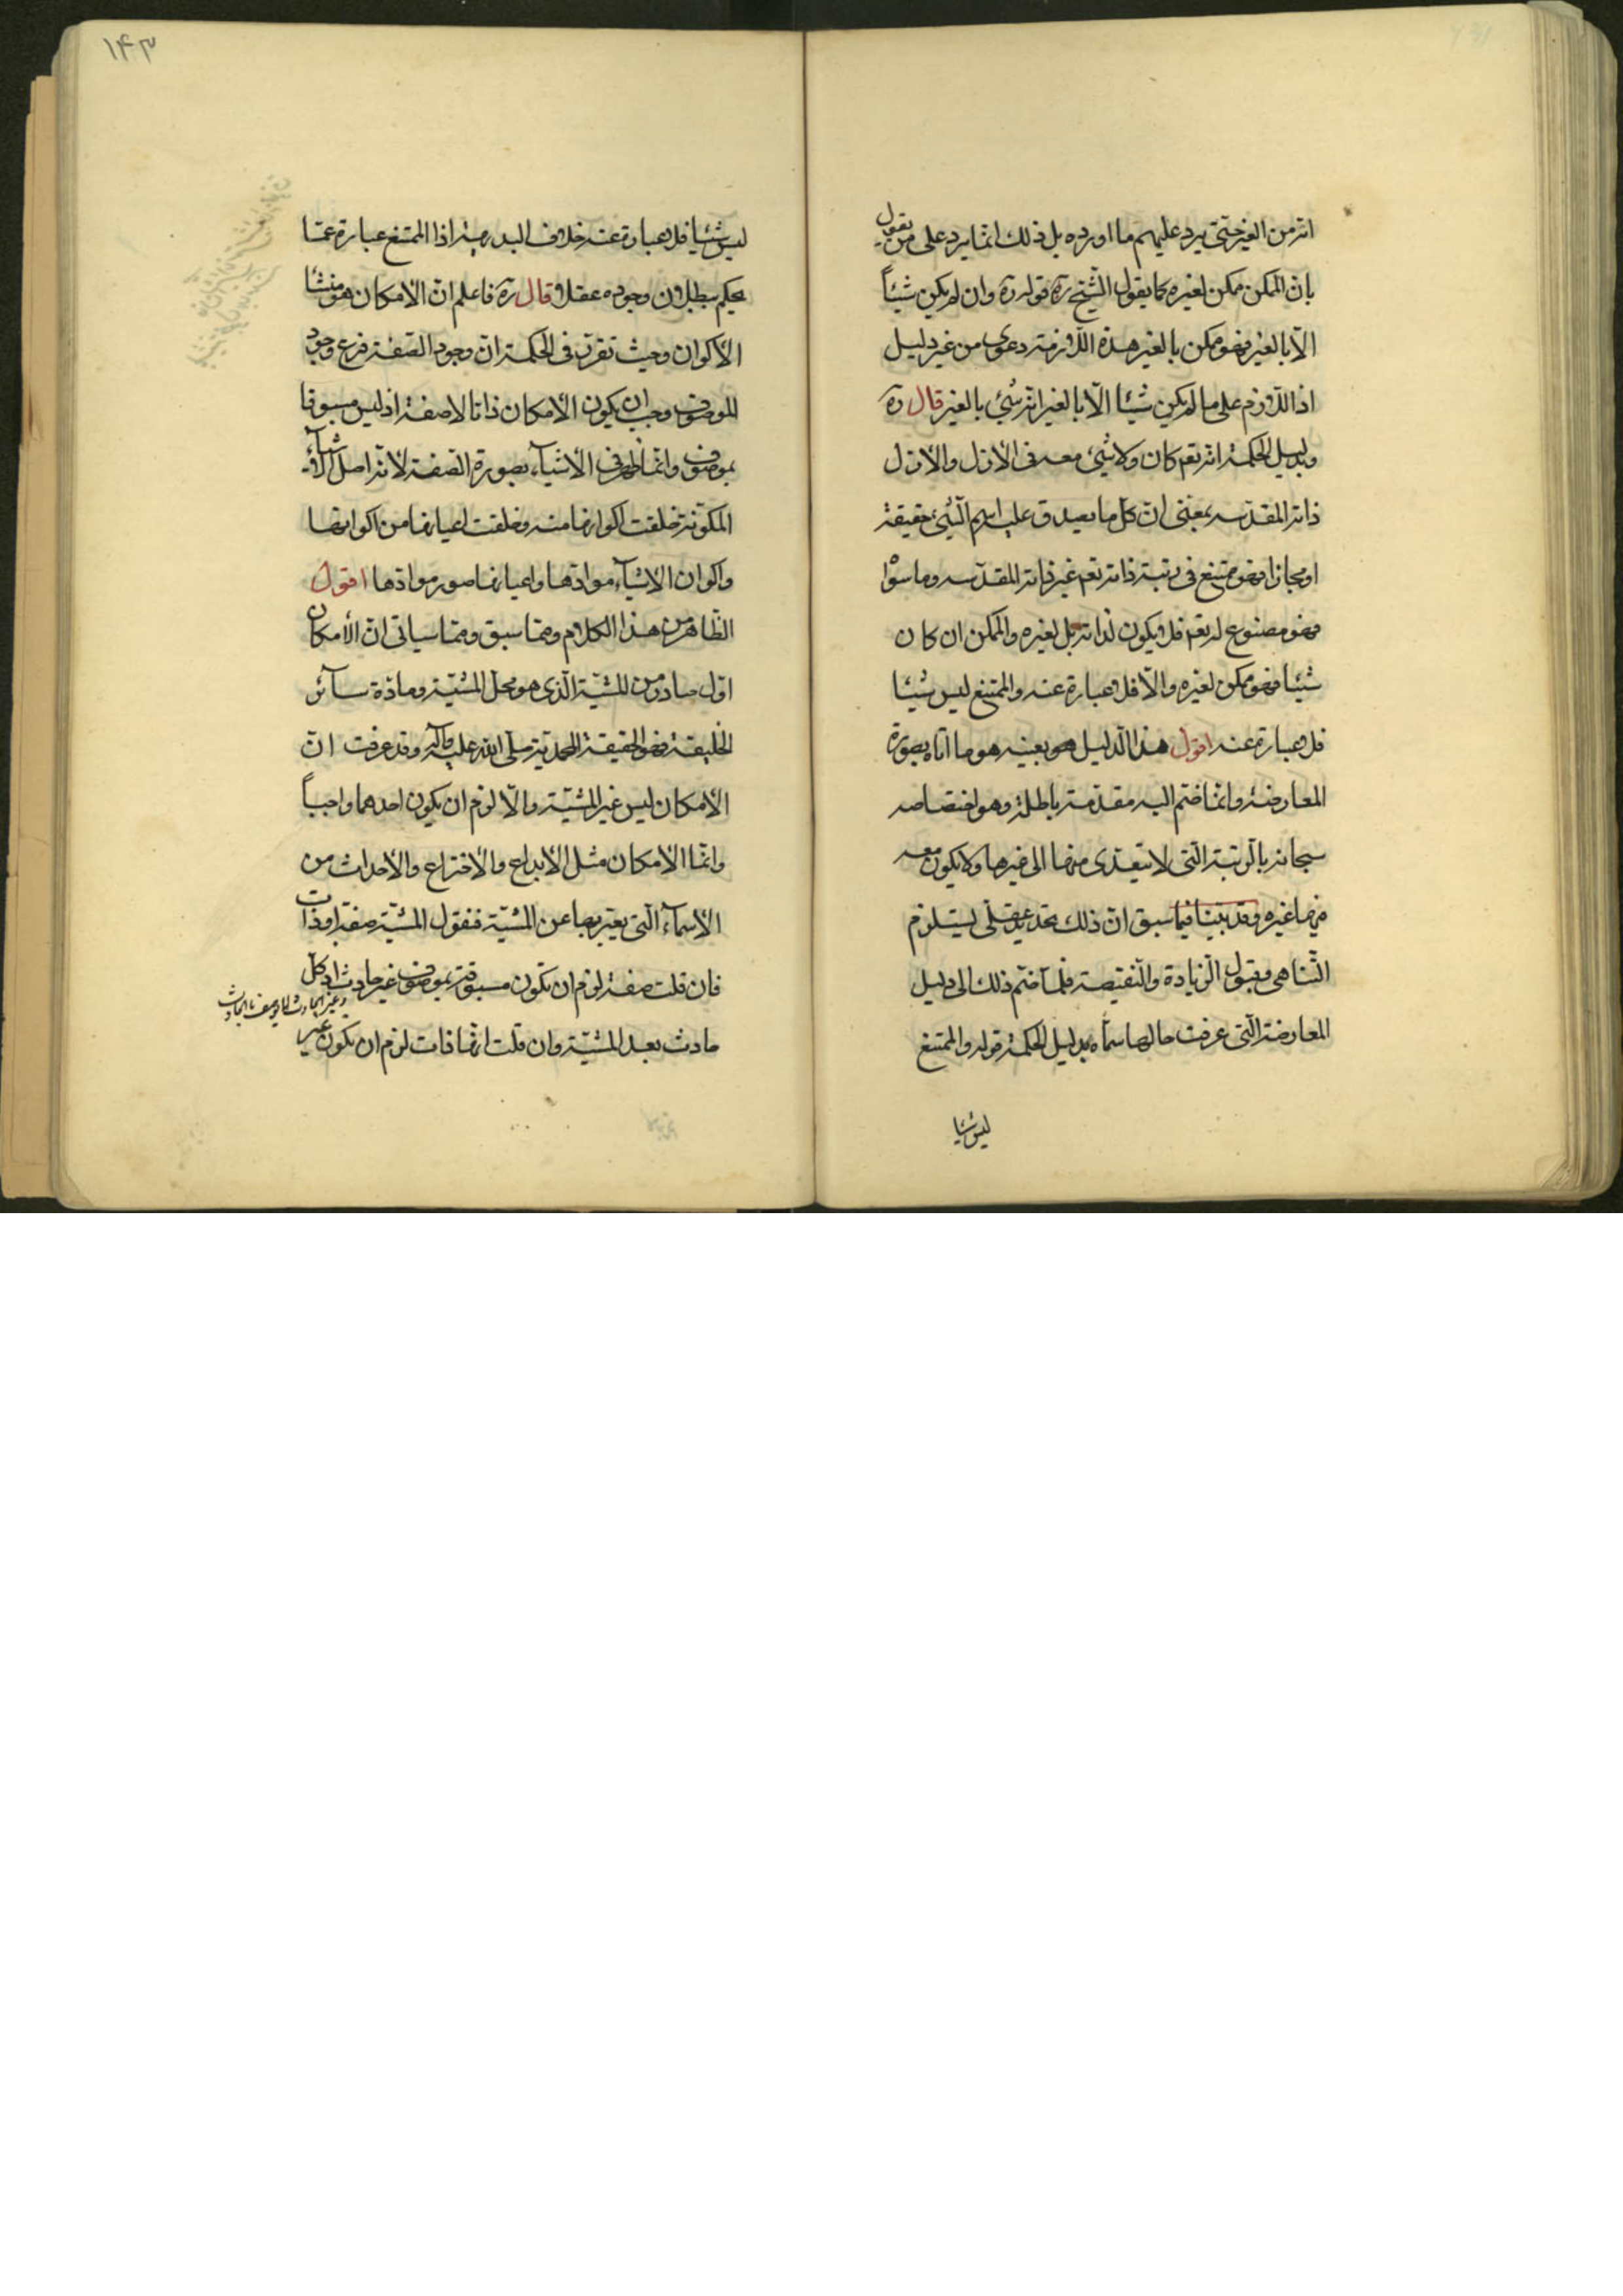 انه من الغير حتى يرد عليهم ما اورده بل ذلك انما يرد على من يقول
بان الممكن ممكن لغيره كما يقول الشيخ ره قوله ره وان لم يكن شيئاً
الا بالغير فهو ممكن بالغير هذه الملازمة دعوى من غير دليل
اذ اللازم على ما لم يكن شيئا الا بالغير انه شئ بالغير قال ره
وبدليل الحكمة انه تعم كان ولا شئ معه في الأزل والأزل
ذاته المقدسه بمعنى ان كل ما يصدق عليه اسم الشئ حقيقة
او مجازا فهو ممتنع في رتبة ذاته تعم غير ذاته المقدسه وما سواه
فهو مصنوع له تعم فلا يكون لذاته بل لغيره والممكن ان كان
شيئا فهو ممكن لغيره والا فلا عبارة عنه والممتنع ليس شيئا
فلا عبارة عنه اقول هذا الدليل هو بعينه هو ما اتاه بصورة
المعارضة وانما ختم اليه مقدمة باطلة وهو اختصاصه
سبحانه بالرتبة التي لا يتعدى منها الى غيرها ولا يكون معه
فيها غيره وقد بينا فيما سبق ان ذلك تحديد عقلي يستلزم
التناهي وقبول الزيادة والنقيصة فلما ختم ذلك الى دليل
المعارضة التي عرفت حالها سماه بدليل الحكمة قوله والممتنع
ليس شيئا
١٤٣
ليس شيئا فلا عبارة عنه خلاف البديهة اذ الممتنع عبارة عما
يحكم ببطلان وجوده عقلا قال ره فاعلم ان الامكان هو منشأ
الأكوان وحيث تقرر في الحكمة ان وجود الصفة فرع وجود
الموصوف وجب ان يكون الأمكان ذاتا لا صفة اذ ليس مسبوقا
بموصوف وانما ظهر في الأشياء بصورة الصفة لأنه اصل الأشياء
المكونة خلقت اكوانها منه وخلقت اعيانها من اكوانها
واكوان الاشياء موادها واعيانها صور موادها اقول
الظاهر من هذا الكلام ومما سبق ومما سيأتي ان الأمكان
اول صادر من المشية الذي هو محل المشية ومادة سائر
الخليقة فهو الحقيقة المحمدية صلى الله عليه وآله وقد عرفت ان
الأمكان ليس غير المشية والا لزم ان يكون احدهما واجباً
وانما الامكان مثل الأبداع والأختراع والأحداث من
الأسماء التي يعبر بها عن المشية فنقول المشية صفة او ذات
فان قلت صفة لزم ان تكون مسبوقة بموصوف غير حادث اذ كل
وغير الحادث لا يوصف بالحادث
حادث بعد المشية وان قلت انها ذات لزم ان يكون غير